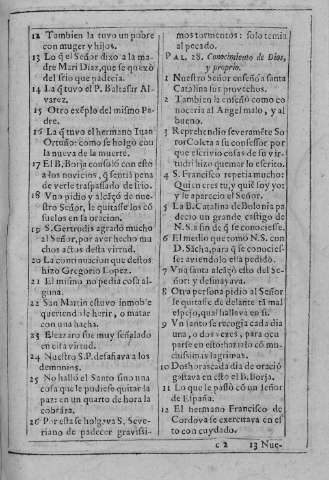 12 Tambien la tuvo un pobre
con muger y hijos.
13 Lo q̃ el Señor dixo a la ma
dre Mari Diaz, que se quexò
del frio que padecia.
14 La q̃ tuvo el P. Baltasar Al
varez.
15 Otro exẽplo del mismo Pa
dre.
16 La q̃ tuvo el hermano Iuan
Ortuño: como se holgò con
la nueva de la muerte.
17 El B. Borja consolò con esto
a los novicios, q̃ sentiã pena
de verle traspassado de frio.
18 Vno pidio y alcãçò de nue-
stro Señor, le quitasse los cõ
suelos en la oracion.
19 S. Gertrudis agradò mucho
al Señor, por aver hecho mu
chos actos desta virtud.
20 La continuacion que dellos
hizo Gregorio Lopez.
21 El mismo no pedia cosa al-
guna.
22 San Martin estuvo inmoble
queriendole herir, o matar
con una hacha.
23 Eleazaro fue muy señalado
en esta virtud.
24 Nuestro S. P. desafiava a los
demonios.
25 No hallò el Santo sino una
cosa que le pudiesse quitar la
paz: en un quarto de hora la
cobrára.
26 Por esta se holgava S. Seve-
riano de padecer gravissi-
mos tormentos: solo temia
al pecado.
PAL. 28. Conocimiento de Dios,
y proprio.
1 Nuestro Señor enseñò a santa
Catalina sus provechos.
2 Tambien la enseñò como co
noceria al Angel malo, y al
bueno.
3 Reprehendio severamẽte So
ror Coleta a su confessor por
que escrivio cosas de su vir-
tud: hizo quemar lo escrito.
4 S. Francisco repetia mucho:
Quien eres tu, y quiẽ soy yo:
y se aparecio el Señor.
5 La B. Catalina de Bolonia pa
decio un grande castigo de
N. S. a fin de q̃ se conociesse.
6 El medio que tomò N. S. con
D. Sãcha, para q̃ se conocies-
se: aviendolo ella pedido.
7 Vna santa alcãçò esto del Se-
ñor: y desmayava.
8 Otra persona pidio al Señor
le quitasse de delante tã mal
espejo, qual hallava en si.
9 Vn santo se recogia cada dia
una, o dos vezes, para ocu
parse en esto: hazialo cõ mu-
chissimas lagrimas.
10 Dos horas cada dia de oraciõ
gastava en esto el B. Borja.
11 Lo que le passò cõ un señor
de España.
12 El hermano Francisco de
Cordova se exercitava en es
to con cuydado.
c 2 13 Nue-